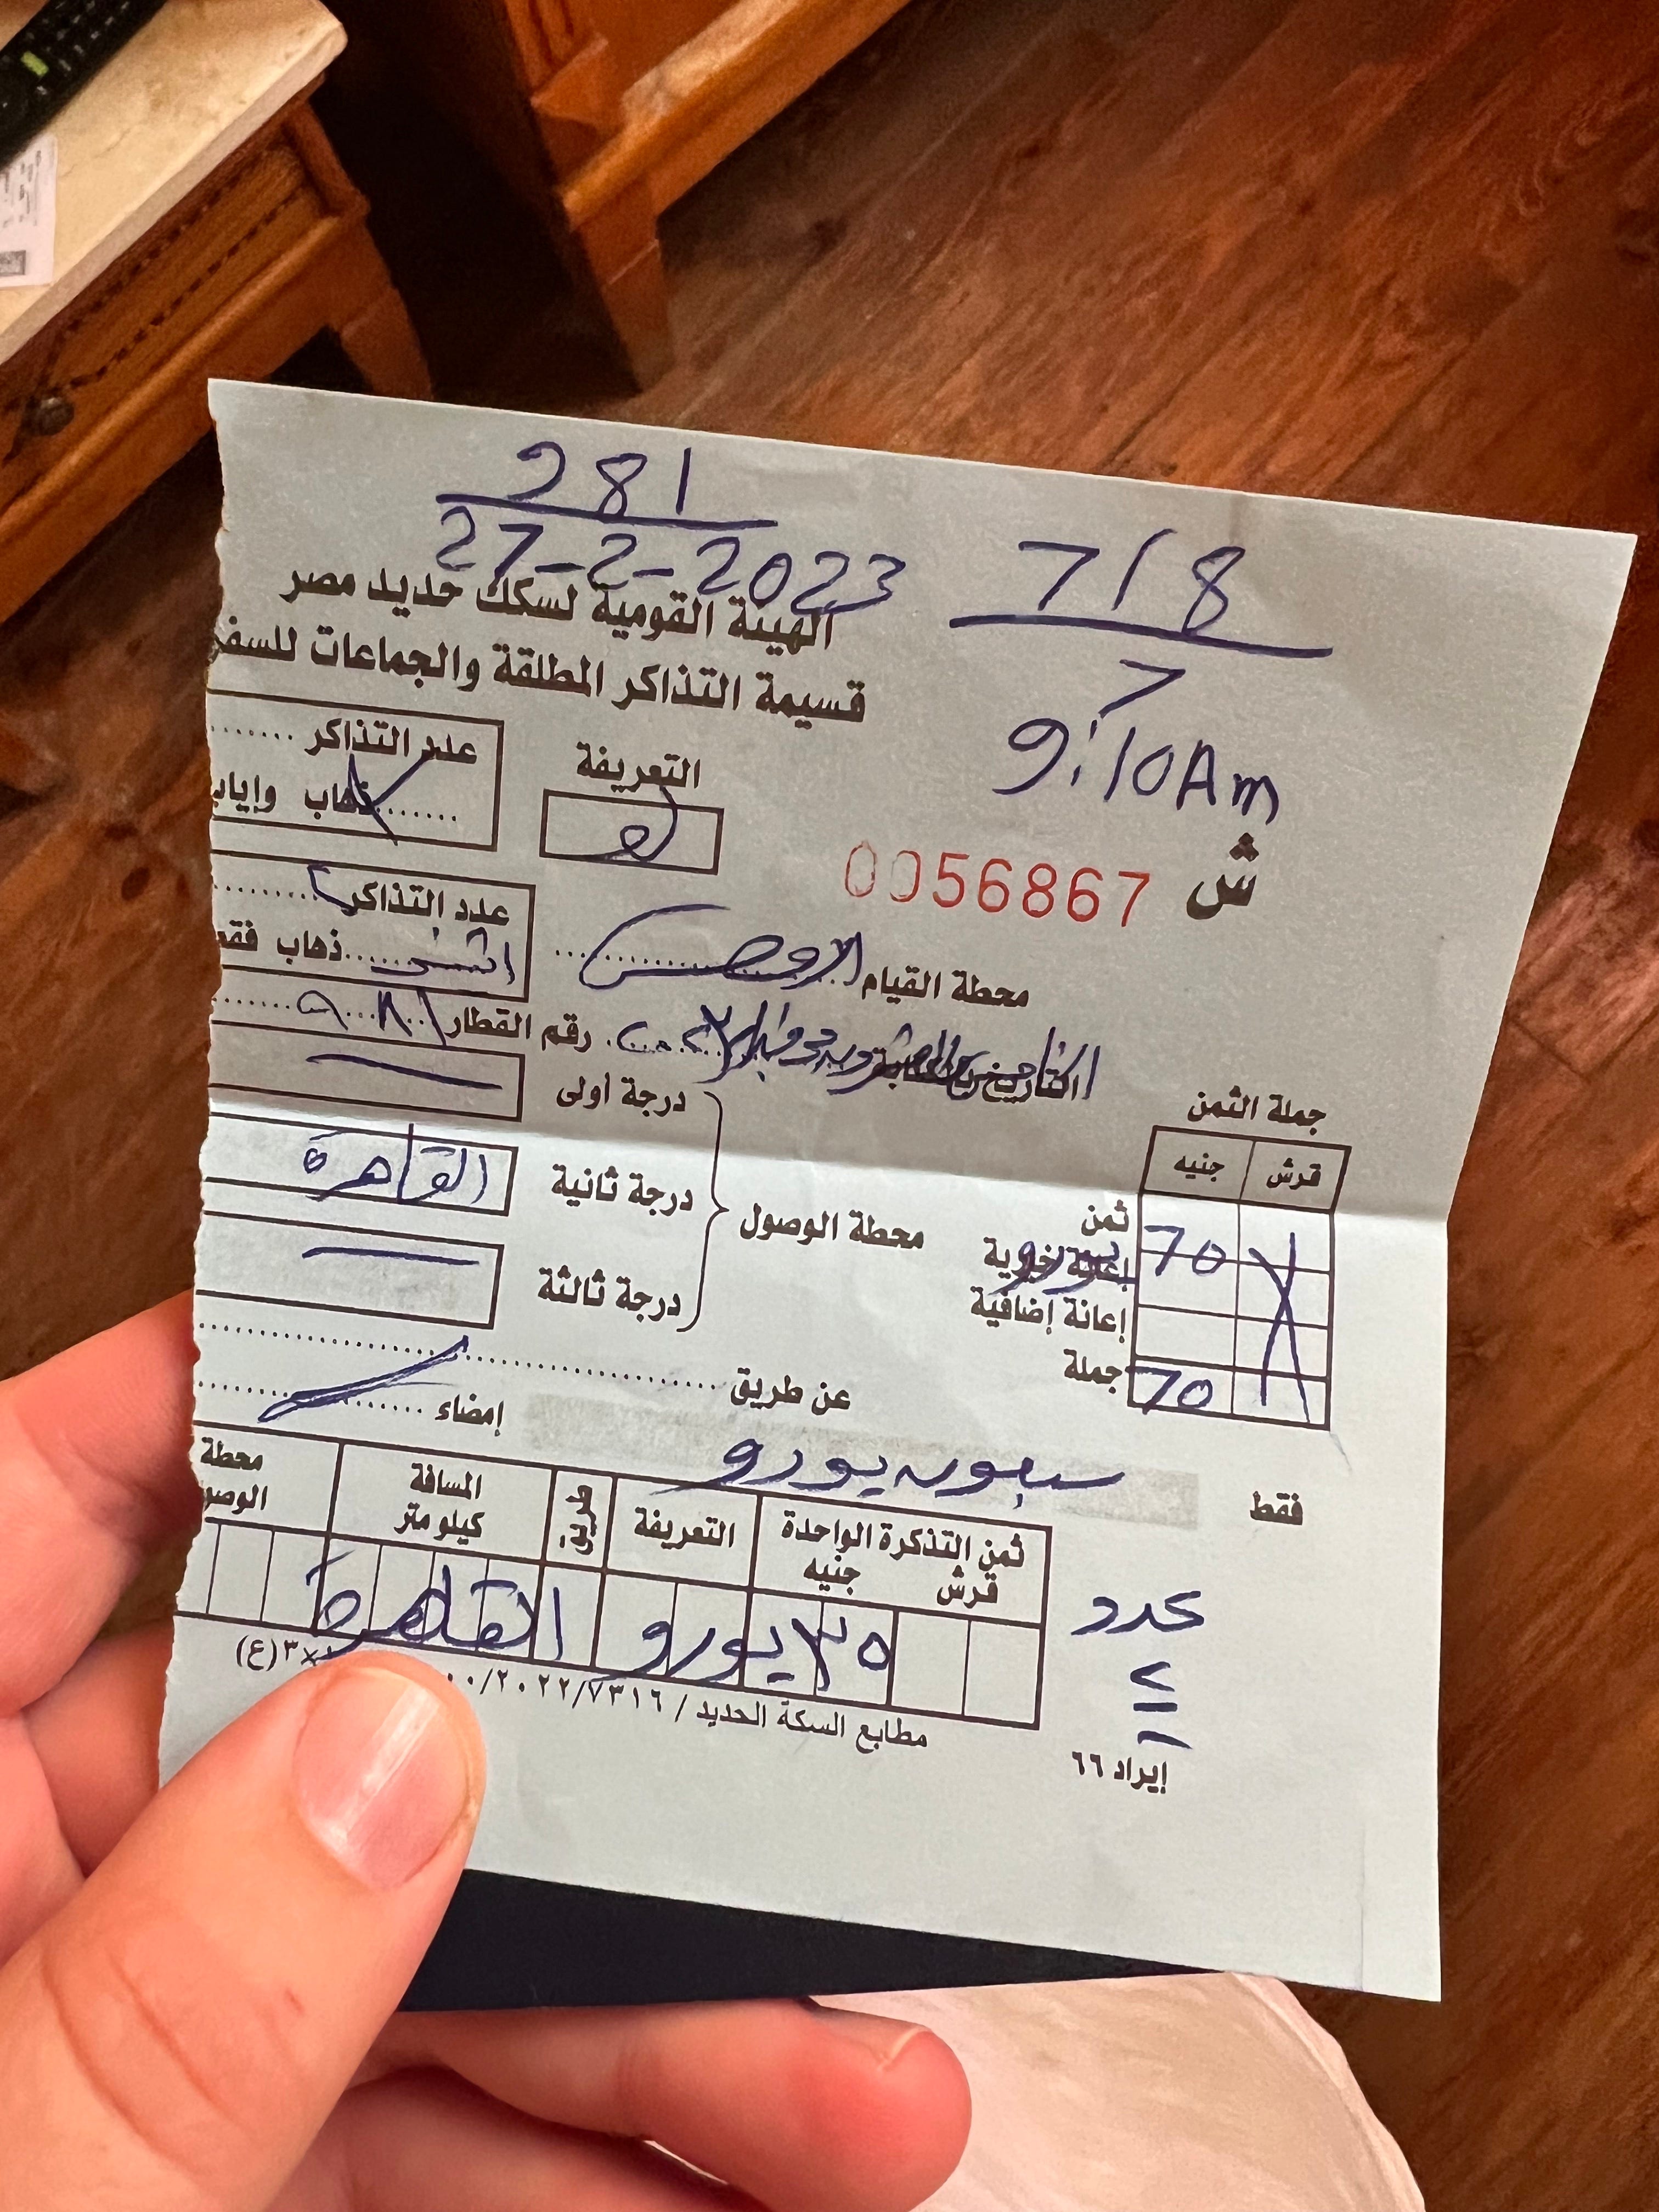 981
27-2-2023
7/8
7
9:10Am
الهيئة القومية لسكك حديد مصر
قسيمة التذاكر المطلقة والجماعات للسفر
التعريفة
عدد التذاكر ........
........ ذهاب وإياب
ش 0056867
عدد التذاكر ٢ ........
اثنين ........ ذهاب فقط
محطة القيام الاقصر
التاريخ
رقم القطار ٩٨١
جملة الثمن
قرش جنيه
ثمن 70
إعانة خيرية
إعانة إضافية
جملة 70
محطة الوصول
درجة أولى
درجة ثانية القاهرة
درجة ثالثة
عن طريق ........
إمضاء ........
فقط سبعون يورو
ثمن التذكرة الواحدة
قرش جنيه
التعريفة
طريق
المسافة
كيلو متر
محطة
الوصول
٣٥ يورو القاهرة
عدد
٢
إيراد ٦٦
مطابع السكة الحديد / ٢٠٢٢/٧٣١٦/